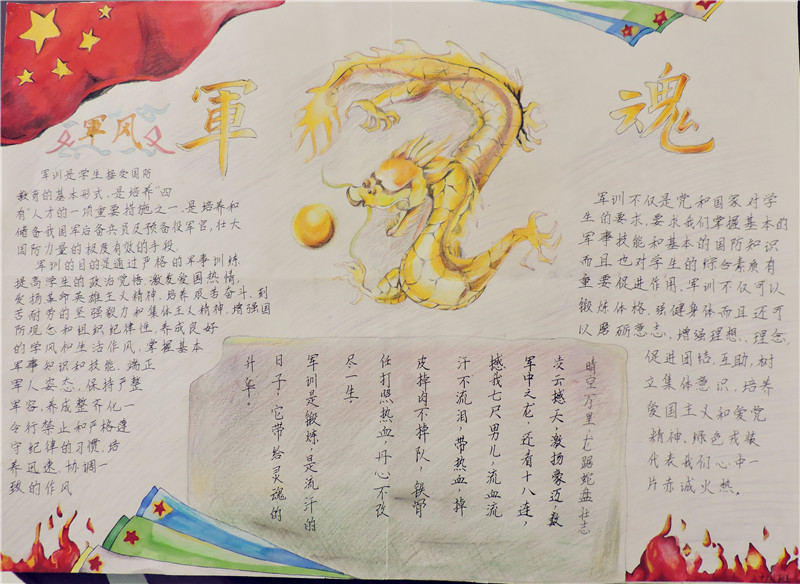 軍魂
军风
军训是学生接受国防
教育的基本形式,是培养“四
有”人才的一项重要措施之一,是培养和
储备我国军后备兵员及预备役军官,壮大
国防力量的极度有效的手段
军训的目的是通过严格的军事训练
提高学生的政治觉悟,激发爱国热情,
发扬革命英雄主义精神,培养艰苦奋斗,刻
苦耐劳的坚强毅力和集体主义精神,增强国
防观念和组织纪律性,养成良好
的学风和生活作风,掌握基本
军事知识和技能,端正
军人姿态,保持严整
军容,养成整齐化一
令行禁止和严格遵
守纪律的习惯,培
养迅速、协调一
致的作风
晴空万里,龙踞蛇盘壮志
凌云撼天,激扬豪迈,数
军中之龙,还看十八连,
撼我七尺男儿,流血流
汗不流泪,带热血,掉
皮掉肉不掉队,铁骨
任打照热血,丹心不改
尽一生。
军训是锻炼,是流汗的
日子,它带给灵魂的
升华。
军训不仅是党和国家对学
生的要求,要求我们掌握基本的
军事技能和基本的国防知识
而且也对学生的综合素质有
重要促进作用,军训不仅可以
锻炼体格,强健身体而且还可
以磨砺意志,增强理想、理念,
促进团结,互助,树
立集体意识,培养
爱国主义和爱党
精神,绿色戎装
代表我们心中一
片赤诚火热。